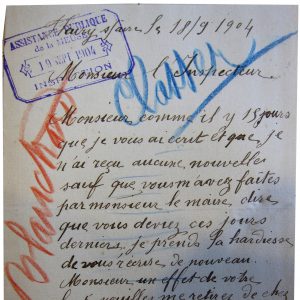 Vaivy s/aire le 18/9 1904
ASSISTANCE PUBLIQUE
de la MEUSE
19 SEPT 1904
INSPECTION
Monsieur l'Inspecteur
Classer
Blanchot
Monsieur comme il y 15 jours
que je vous ai ecrit et que je
n'ai reçu aucune nouvelles
sauf que vous m'avez faites
par monsieur le maire dire
que vous deviez ces jours
derniers je prends la hardiesse
de vous écrire de nouveau.
Monsieur un effet de votre
me retirer de chez